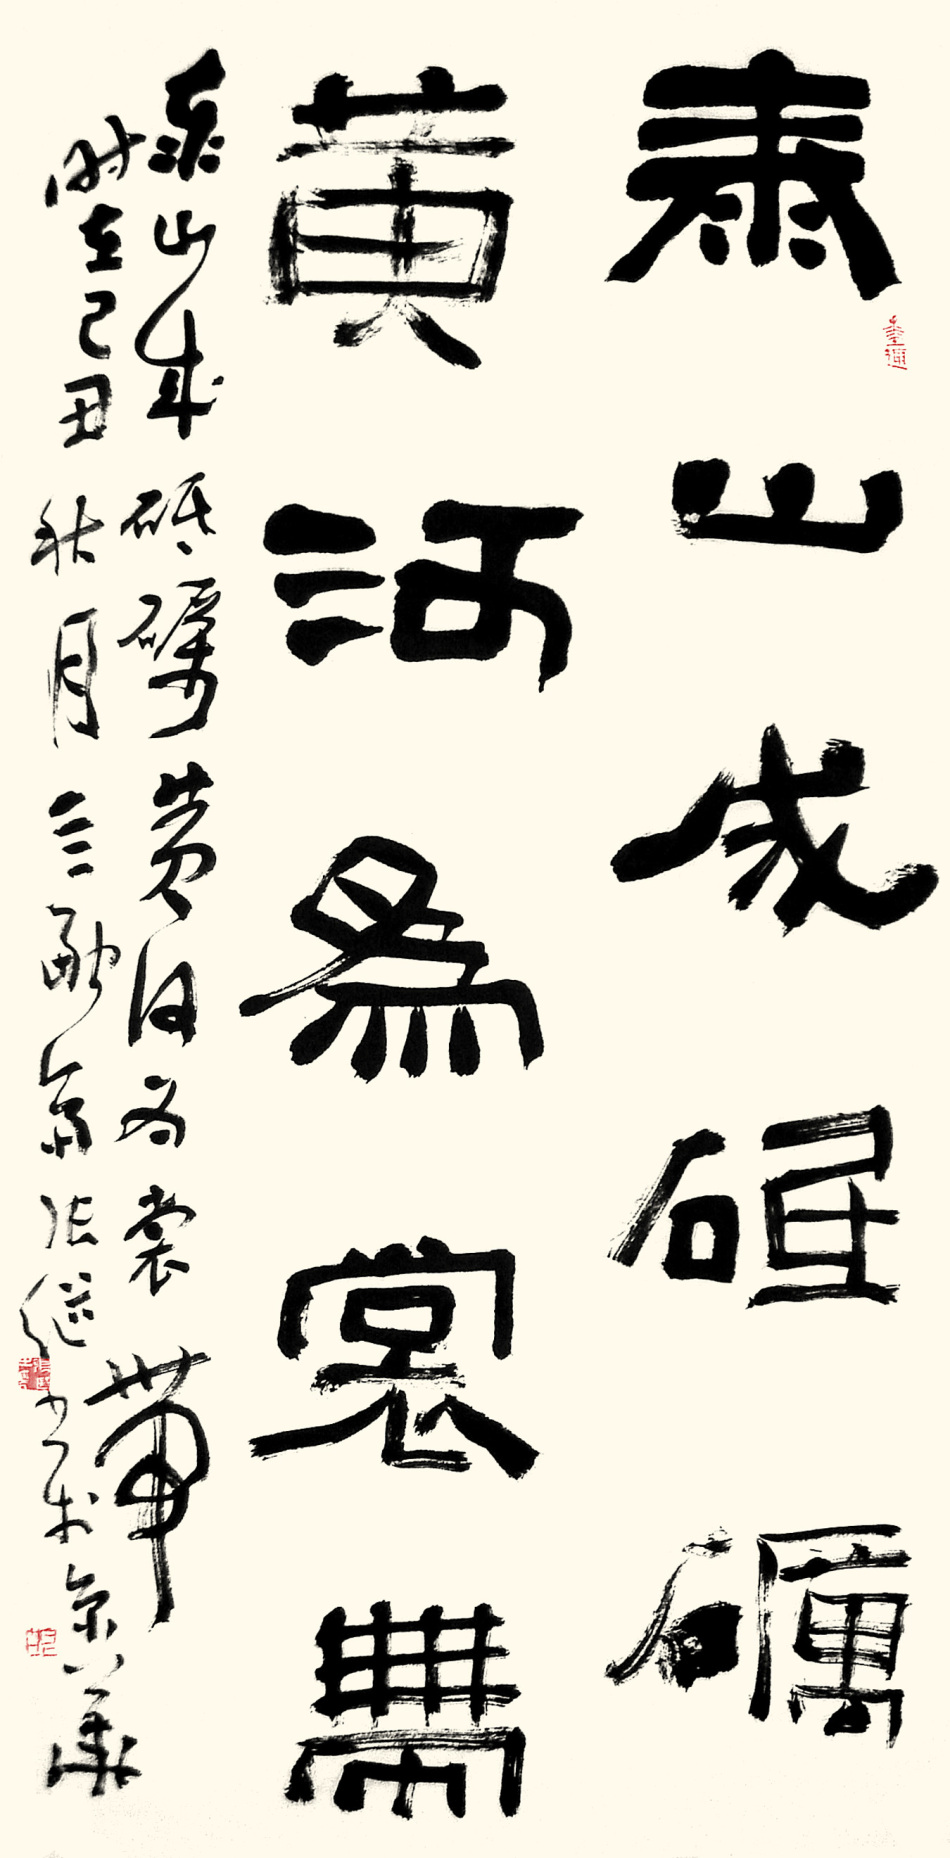 泰山成砥礪
黃河為裳帶
泰山成砥礪黃河為裳帶
時在己丑秋月三融齋張繼書於京華